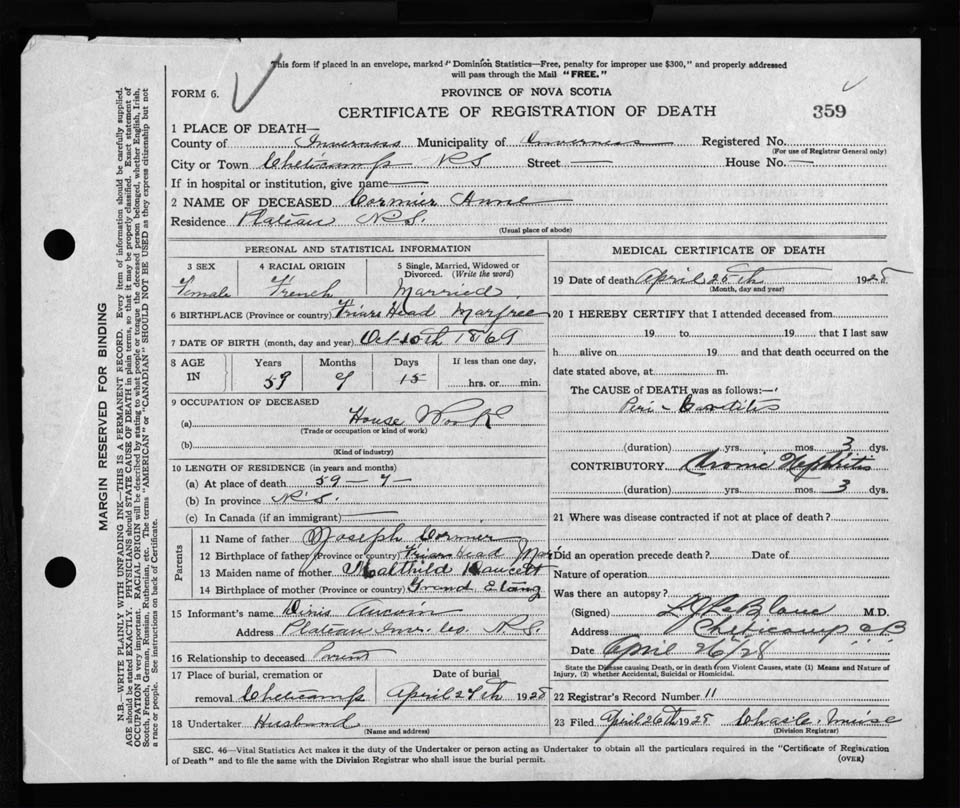 This form if placed in an envelope, marked "Dominion Statistics—Free, penalty for improper use $300," and properly addressed
will pass through the Mail "FREE."
FORM 6.
PROVINCE OF NOVA SCOTIA
CERTIFICATE OF REGISTRATION OF DEATH
359
1 PLACE OF DEATH—
County of Inverness Municipality of Inverness Registered No.
(For use of Registrar General only)
City or Town Cheticamp N S Street — House No. —
If in hospital or institution, give name —
2 NAME OF DECEASED Cormier Anne
Residence Plateau N.S.
(Usual place of abode)
PERSONAL AND STATISTICAL INFORMATION
3 SEX 4 RACIAL ORIGIN 5 Single, Married, Widowed or
Divorced. (Write the word)
Female French Married
6 BIRTHPLACE (Province or country) Friars Head Marfree
7 DATE OF BIRTH (month, day and year) Oct 10th 1869
8 AGE IN Years Months Days If less than one day,
59 15 hrs. or min.
9 OCCUPATION OF DECEASED
(a) House Work
(Trade or occupation or kind of work)
(b)
(Kind of industry)
10 LENGTH OF RESIDENCE (in years and months)
(a) At place of death 59 —
(b) In province N.S.
(c) In Canada (if an immigrant) —
Parents
11 Name of father Joseph Cormier
12 Birthplace of father (Province or country) Friars Head Mar
13 Maiden name of mother
14 Birthplace of mother (Province or country) Grand Etang
15 Informant's name Aucoin
Address Plateau Inver. Co. N.S.
16 Relationship to deceased
17 Place of burial, cremation or Date of burial
removal Cheticamp April 27th 1928
18 Undertaker Husband
(Name and address)
MEDICAL CERTIFICATE OF DEATH
19 Date of death April 25th 1928
(Month, day and year)
20 I HEREBY CERTIFY that I attended deceased from
19 to 19 that I last saw
h alive on 19 and that death occurred on the
date stated above, at m.
The CAUSE of DEATH was as follows:—
Peri-Carditis
(duration) yrs. mos. 3 dys.
CONTRIBUTORY Chronic Nephritis
(duration) yrs. mos. 3 dys.
21 Where was disease contracted if not at place of death?
Did an operation precede death? Date of
Nature of operation
Was there an autopsy?
(Signed) LeBlanc M.D.
Address Cheticamp C B
Date April 26/28
State the Disease causing Death, or in death from Violent Causes, state (1) Means and Nature of
Injury, (2) whether Accidental, Suicidal or Homicidal.
22 Registrar's Record Number 11
23 Filed April 26th 1928 Chas. Muise
(Division Registrar)
SEC. 46—Vital Statistics Act makes it the duty of the Undertaker or person acting as Undertaker to obtain all the particulars required in the "Certificate of Registration
of Death" and to file the same with the Division Registrar who shall issue the burial permit.
(OVER)
MARGIN RESERVED FOR BINDING
N.B.—WRITE PLAINLY WITH UNFADING INK—THIS IS A PERMANENT RECORD. Every item of information should be carefully supplied.
AGE should be stated EXACTLY. PHYSICIANS should STATE CAUSE OF DEATH in plain terms, so that it may be properly classified. Exact statement of
OCCUPATION is very important. RACIAL ORIGIN will be described by stating to what people or tongue the deceased person belonged, whether English, Irish,
Scotch, French, German, Russian, Ruthenian, etc. The terms "AMERICAN" or "CANADIAN" SHOULD NOT BE USED as they express citizenship but not
a race or people. See instructions on back of Certificate.